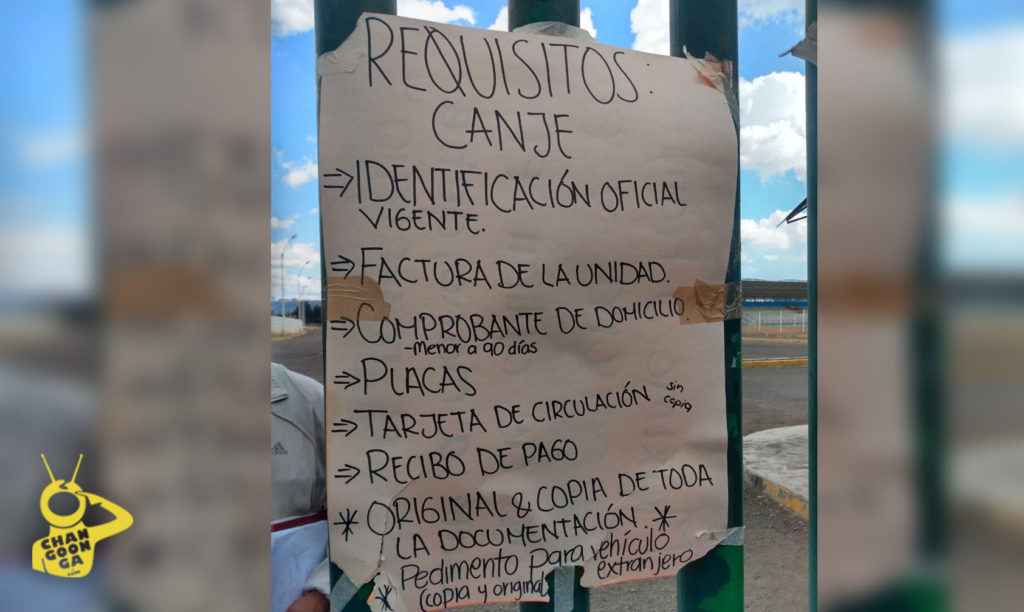 REQUISITOS:
CANJE
⇒IDENTIFICACIÓN OFICIAL
VIGENTE.
⇒FACTURA DE LA UNIDAD.
⇒COMPROBANTE DE DOMICILIO.
-Menor a 90 días
⇒PLACAS
⇒TARJETA DE CIRCULACIÓN sin
copia
⇒RECIBO DE PAGO
*ORIGINAL & COPIA DE TODA
LA DOCUMENTACIÓN.*
*Pedimento para vehículo
(copia y original) extranjero
CHAN
GOON
GA
.COM